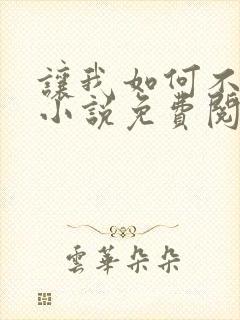 讓我如何不
小說免費閱
雲華朵朵